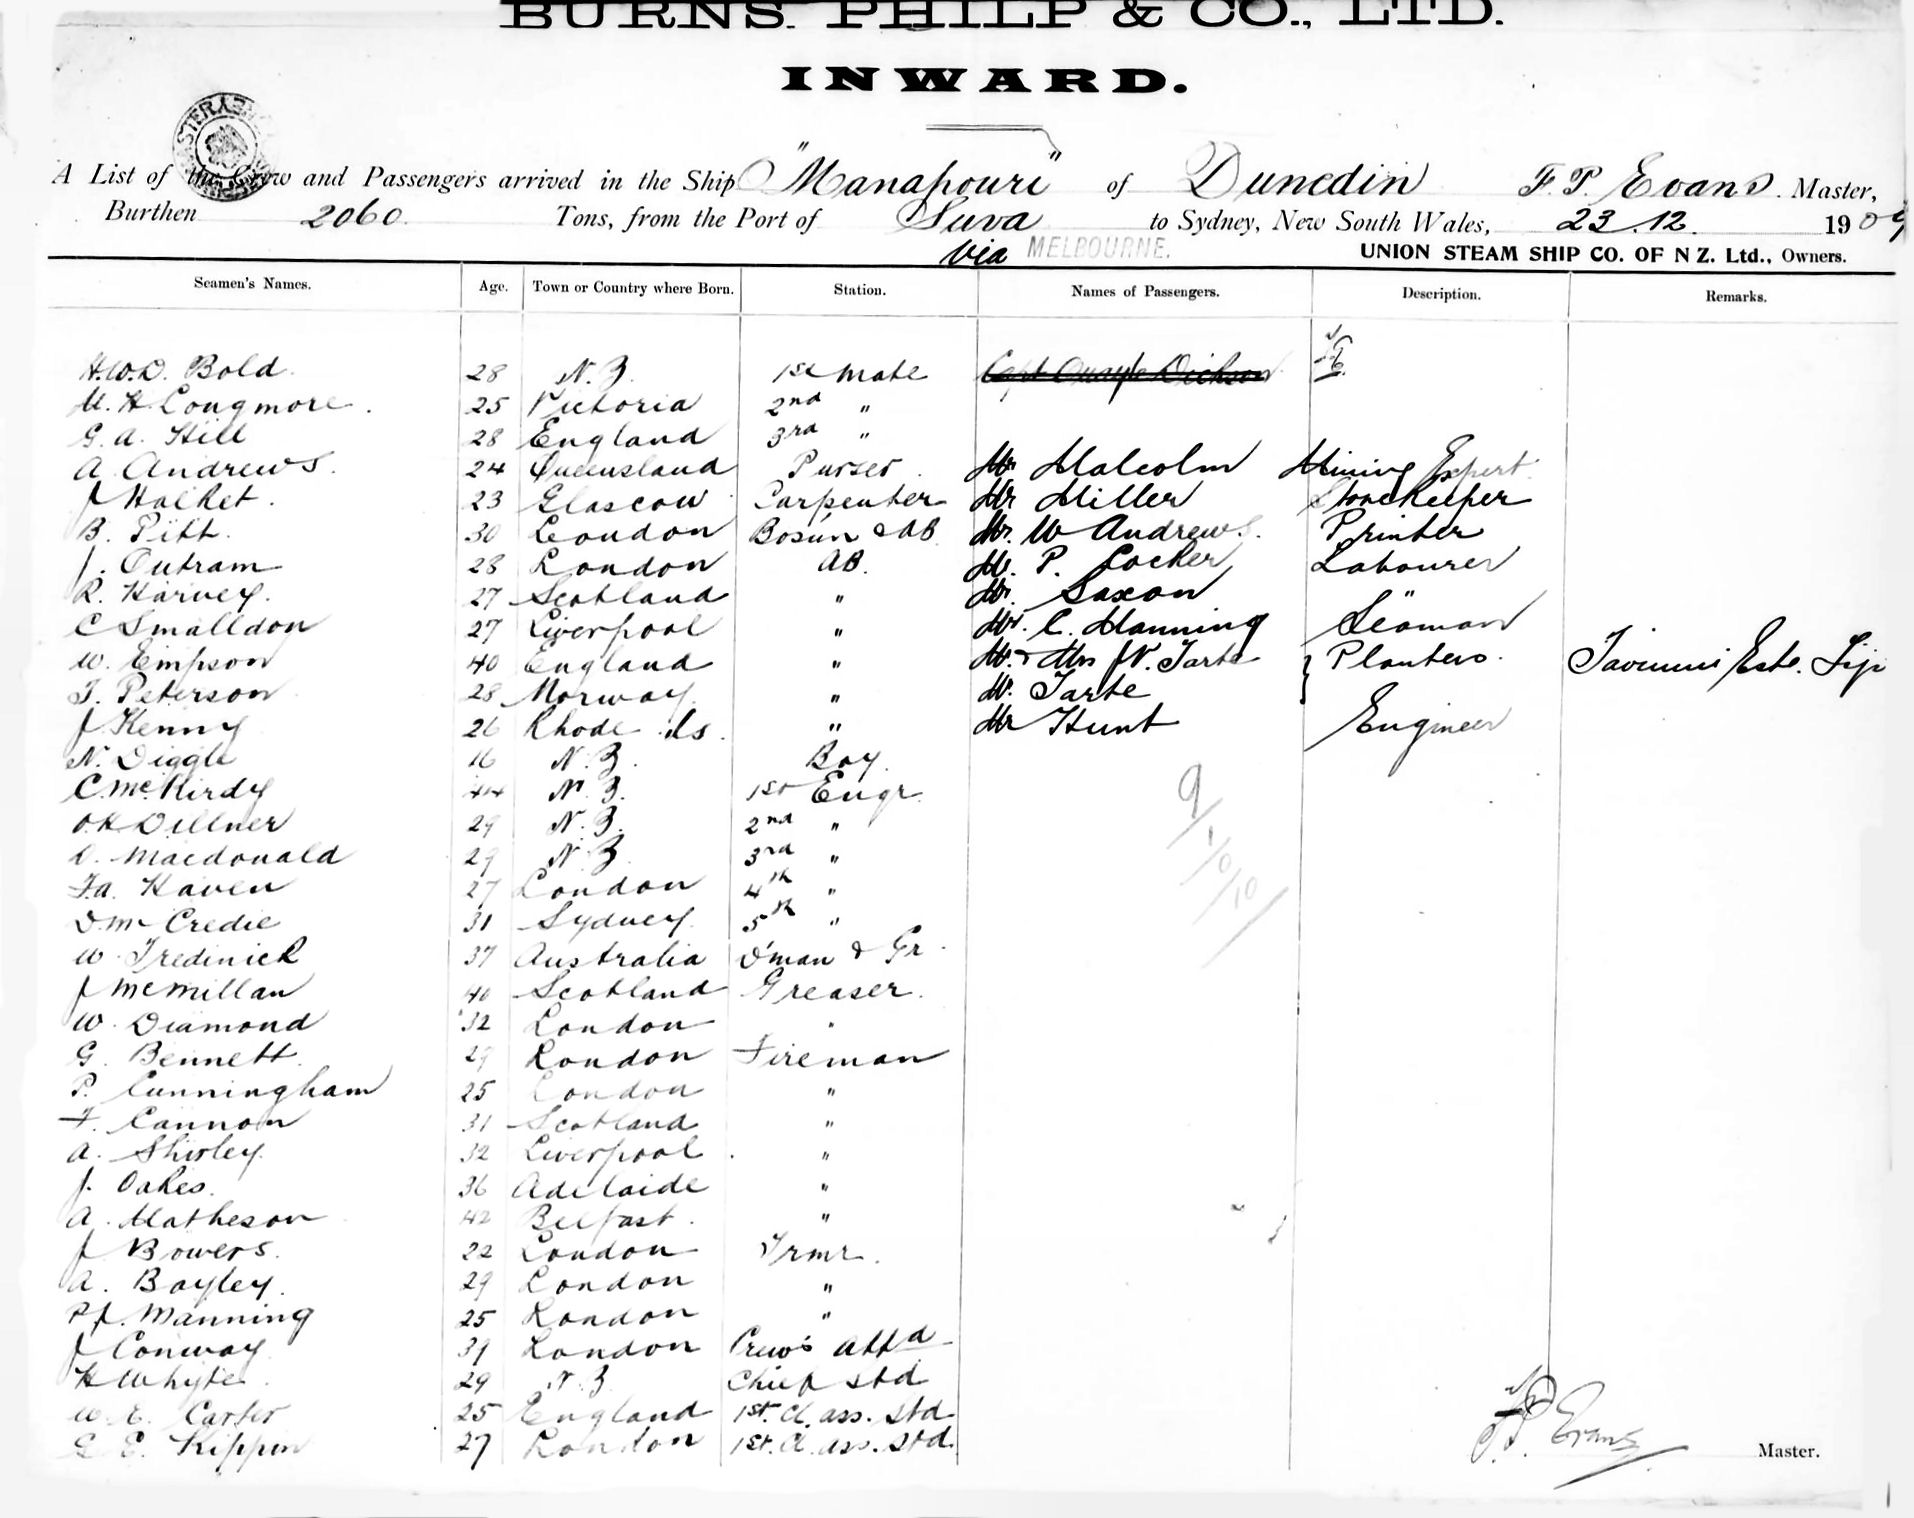 BURNS. PHILP & CO., LTD.
INWARD.
A List of the Crew and Passengers arrived in the Ship "Manapouri" of Dunedin F. P. Evans. Master,
Burthen 2060. Tons, from the Port of Suva to Sydney, New South Wales, 23.12. 1909
via MELBOURNE. UNION STEAM SHIP CO. OF N Z. Ltd., Owners.
Seamen's Names. Age. Town or Country where Born. Station. Names of Passengers. Description. Remarks.
H.W.D. Bold. 28 N.Z. 1st Mate Capt Quayle Dickson
M. H Longmore. 25 Victoria 2nd "
G. A. Hill 28 England 3rd "
A. Andrews. 24 Queensland Purser. Mr Malcolm Mining Expert.
J Halket. 23 Glascow Carpenter Mr Miller Storekeeper
B. Pitt. 30 London Bosun & AB. Mr. W Andrews. Printer
J. Outram 28 London AB. Mr. P. Locker, Labourer
R. Harvey. 27 Scotland " Mr. Saxon "
C Smalldon 27 Liverpool " Mr. C. Manning Seaman
W. Empson 40 England " Mr. & Mrs J.V. Tarte } Planters. Taviuni Este. Fiji
T. Peterson 28 Norway. " Mr. Tarte
J Kenny 26 Rhode Is. " Mr Hunt Engineer
N. Diggle 16 N.Z. Boy.
C. McKirdy 44 N.Z. 1st Engr.
O.H Dillner 29 N.Z. 2nd "
D. Macdonald 29 N.Z. 3rd "
F.A. Haven 27 London 4th "
D. Mc Credie 31 Sydney. 5th "
W. Tredinick 37 Australia D'man & Gr.
J McMillan 40 Scotland Greaser.
W. Diamond 32 London "
G. Bennett. 29 London Fireman
P. Cunningham 25 London "
F. Cannon 31 Scotland "
A. Shirley. 32 Liverpool. "
J. Oakes. 36 Adelaide "
A. Matheson 42 Belfast. "
J Bowers. 22 London Trmr.
A. Bayley. 29 London "
P.J. Manning 25 London "
J Conway 31 London Crew's Attd
H Whyte. 29 N.Z. Chief Std
W. E. Carter 25 England 1st. Cl. ass. Std.
G E. Kippin 27 London 1st. Cl. ass. Std.
F. P. Evans Master.